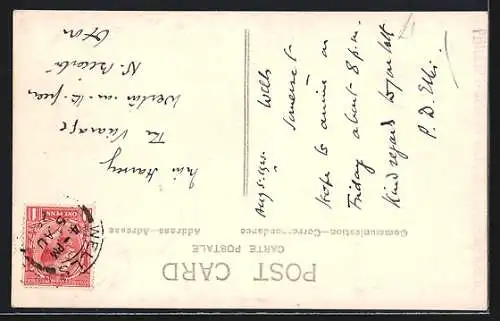 POST CARD
CARTE POSTALE
Communication—Correspondance
Address—Adresse
Wells
Somerset
Hope to arrive on
Friday about 8 p.m.
Kind regards to you both
P. D. Ellis
Miss Harvey
The Vicarage
Weston-in-
Nr.
Oxon
WELLS
4 - PM
5 AU
ONE PENNY